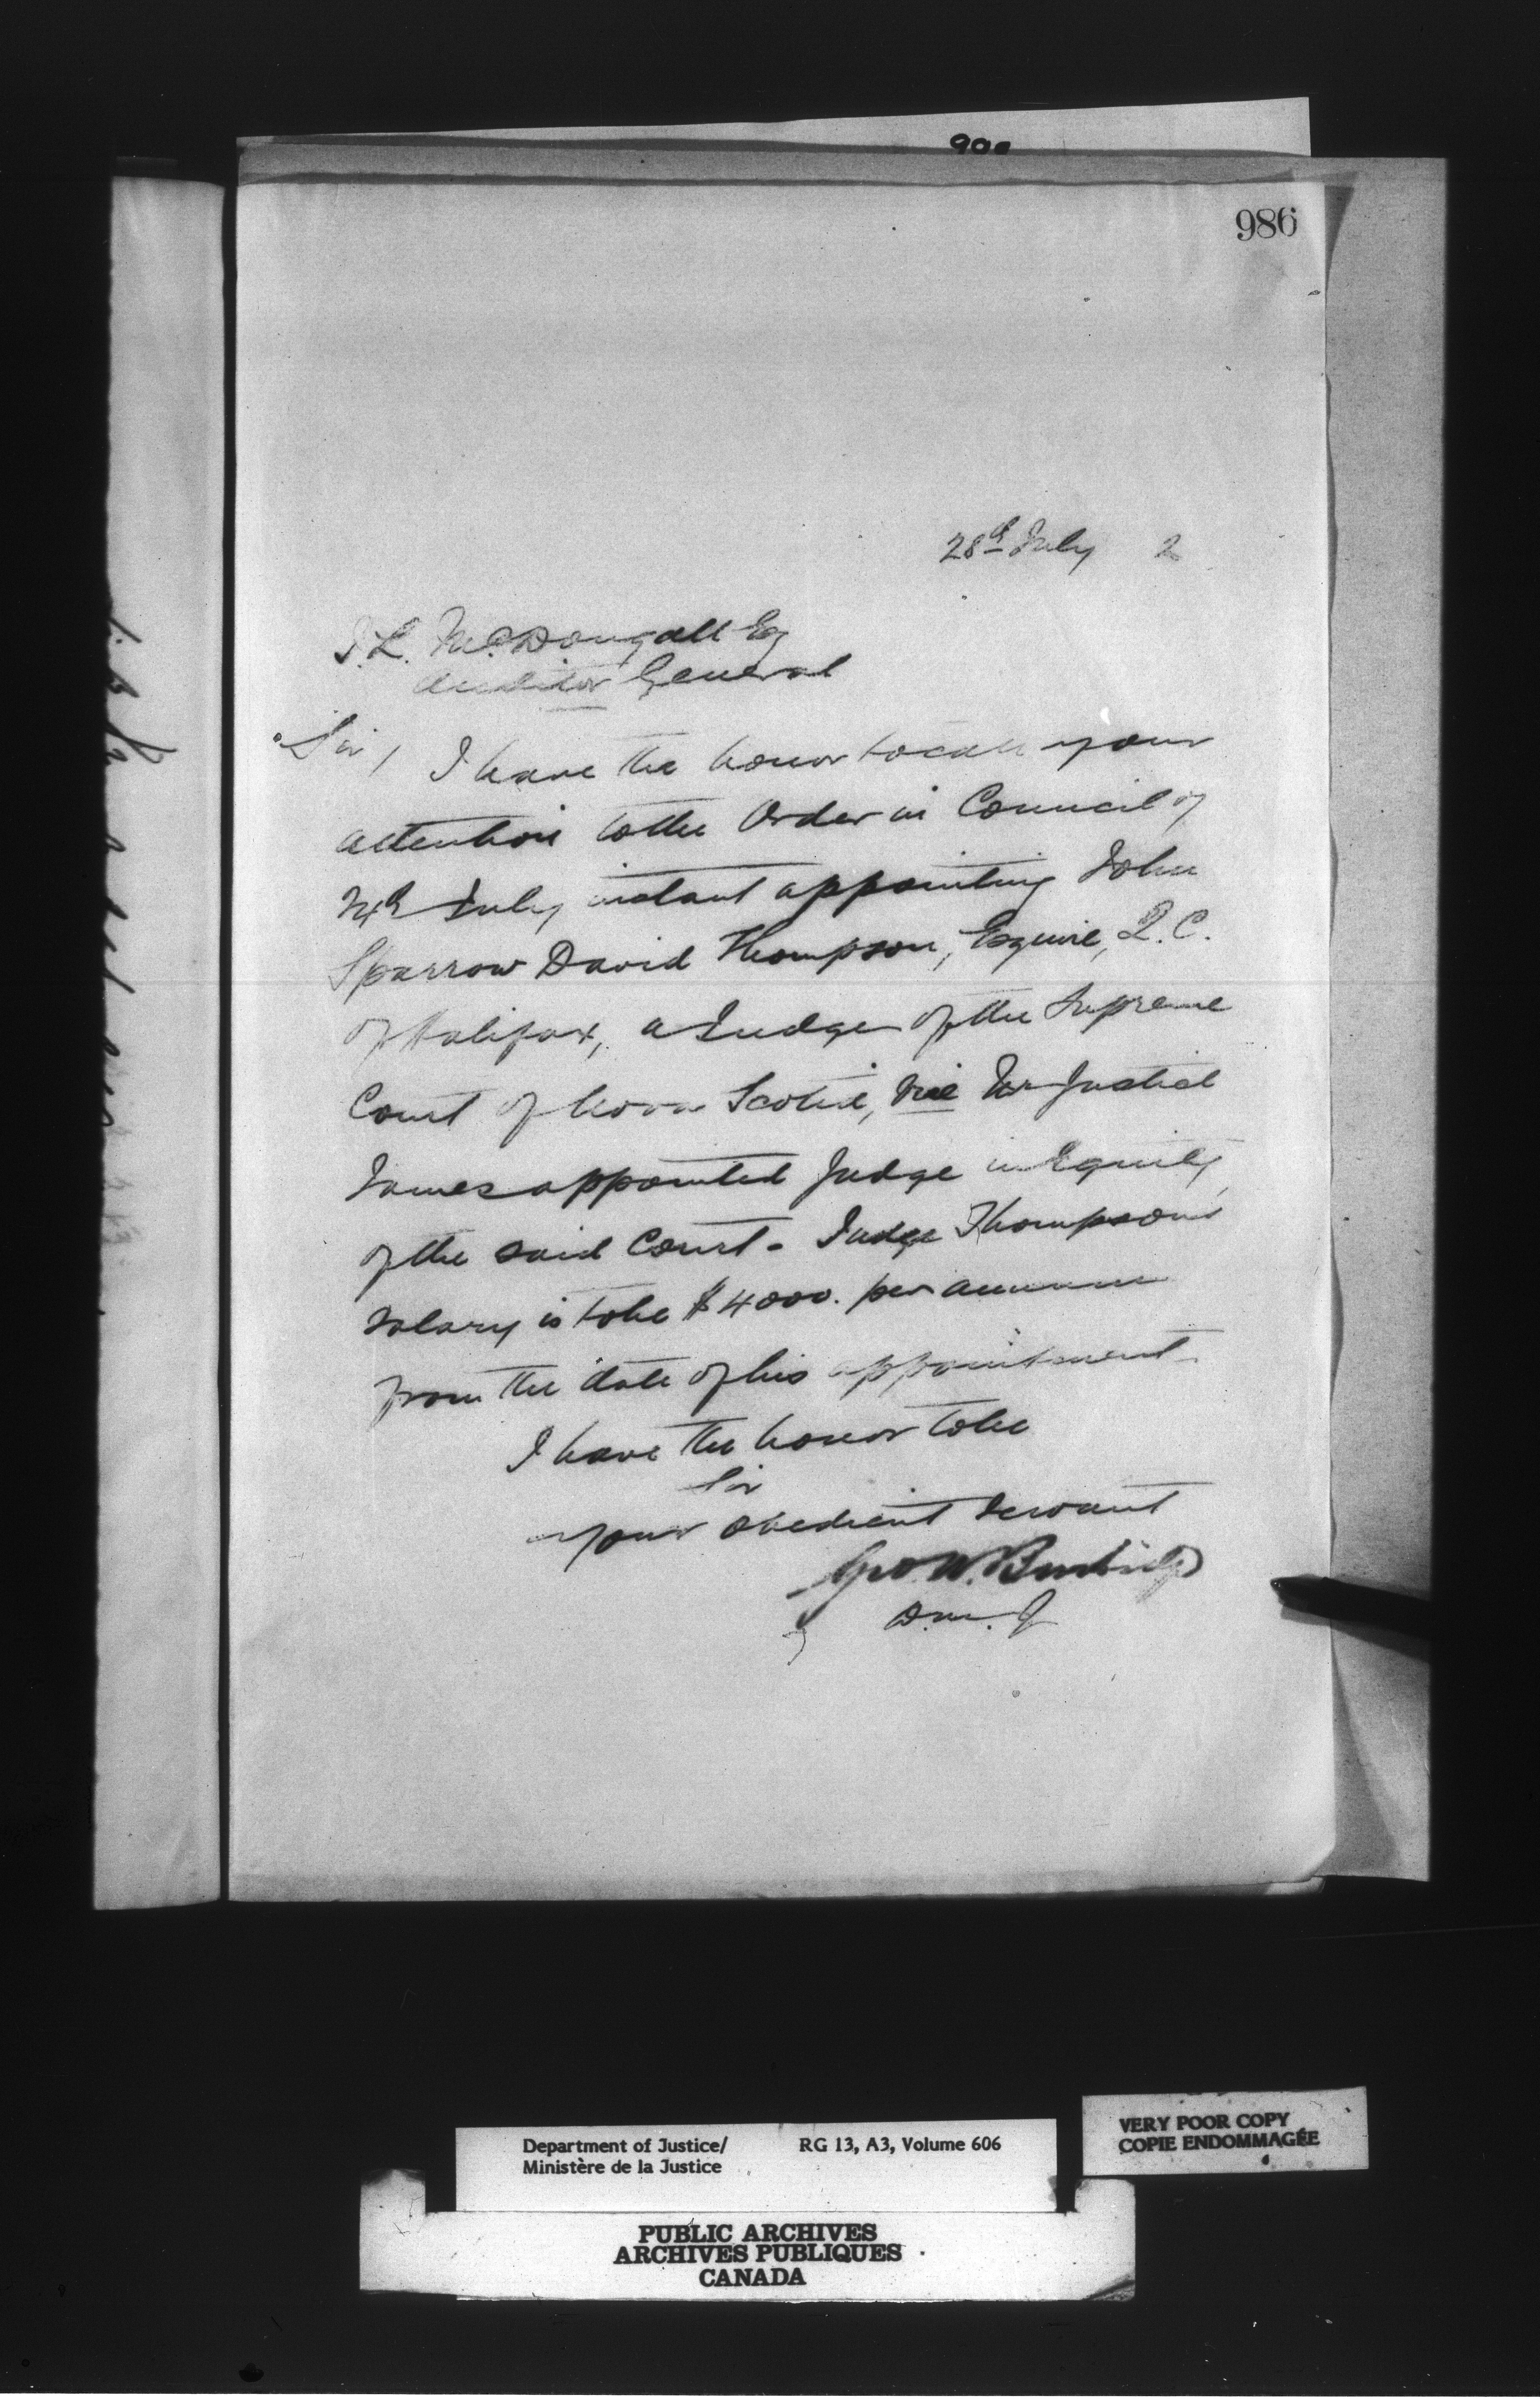 986
28th July 2
J. L. McDougall Esq
Auditor General
Sir, I have the honor to call your
attention to the Order in Council of
July instant appointing John
Sparrow David Thompson, Esquire, Q.C.
of Halifax, a Judge of the Supreme
Court of Nova Scotia, vice Mr Justice
James appointed Judge in Equity
of the said Court - Judge Thompson's
salary is to be $4000. per annum
from the date of his appointment.
I have the honor to be
Sir
your obedient servant
Geo. W. Burbidge
D.M.J
Department of Justice/ RG 13, A3, Volume 606
Ministère de la Justice
VERY POOR COPY
COPIE ENDOMMAGÉE
PUBLIC ARCHIVES
ARCHIVES PUBLIQUES
CANADA